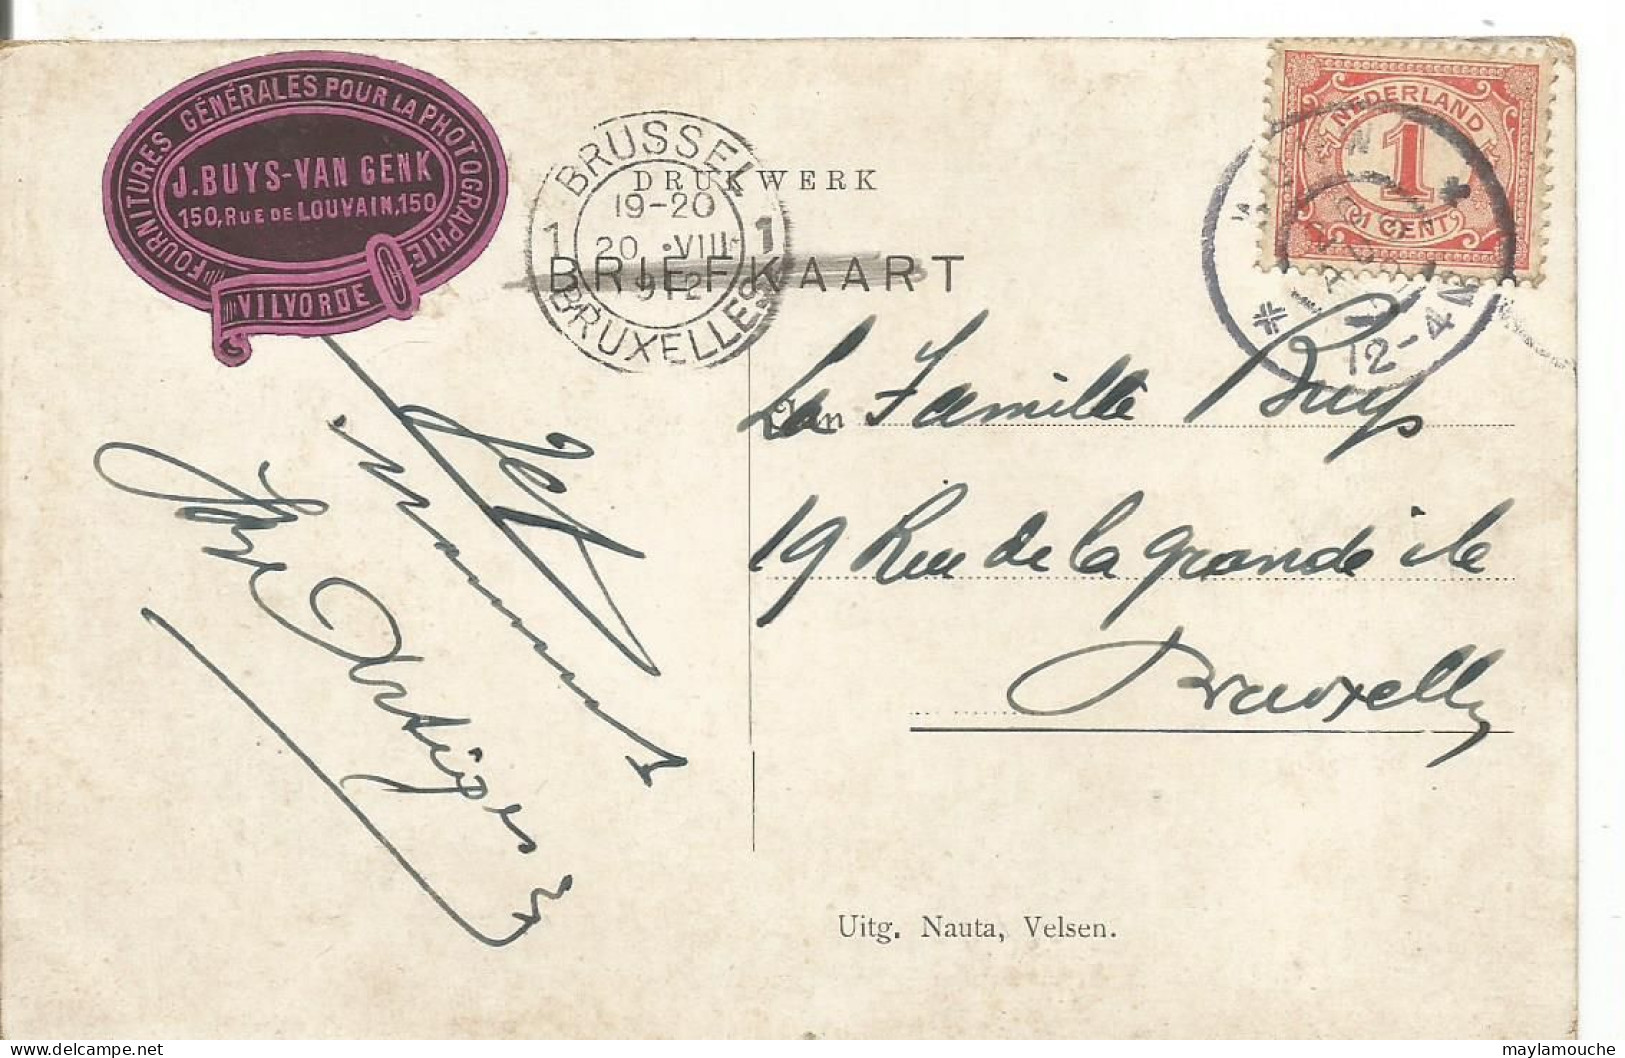 FOURNITURES GÉNÉRALES POUR LA PHOTOGRAPHIE
J.BUYS-VAN GENK
150, RUE DE LOUVAIN, 150
VILVORDE
BRUSSEL
19-20
1 20 · VIII 1
912
BRUXELLES
DRUKWERK
BRIEFKAART
NEDERLAND
1
1 CENT
12-4 N
Aan La Famille Buys
19 Rue de la grande île
Bruxelles
Uitg. Nauta, Velsen.
maylamouche